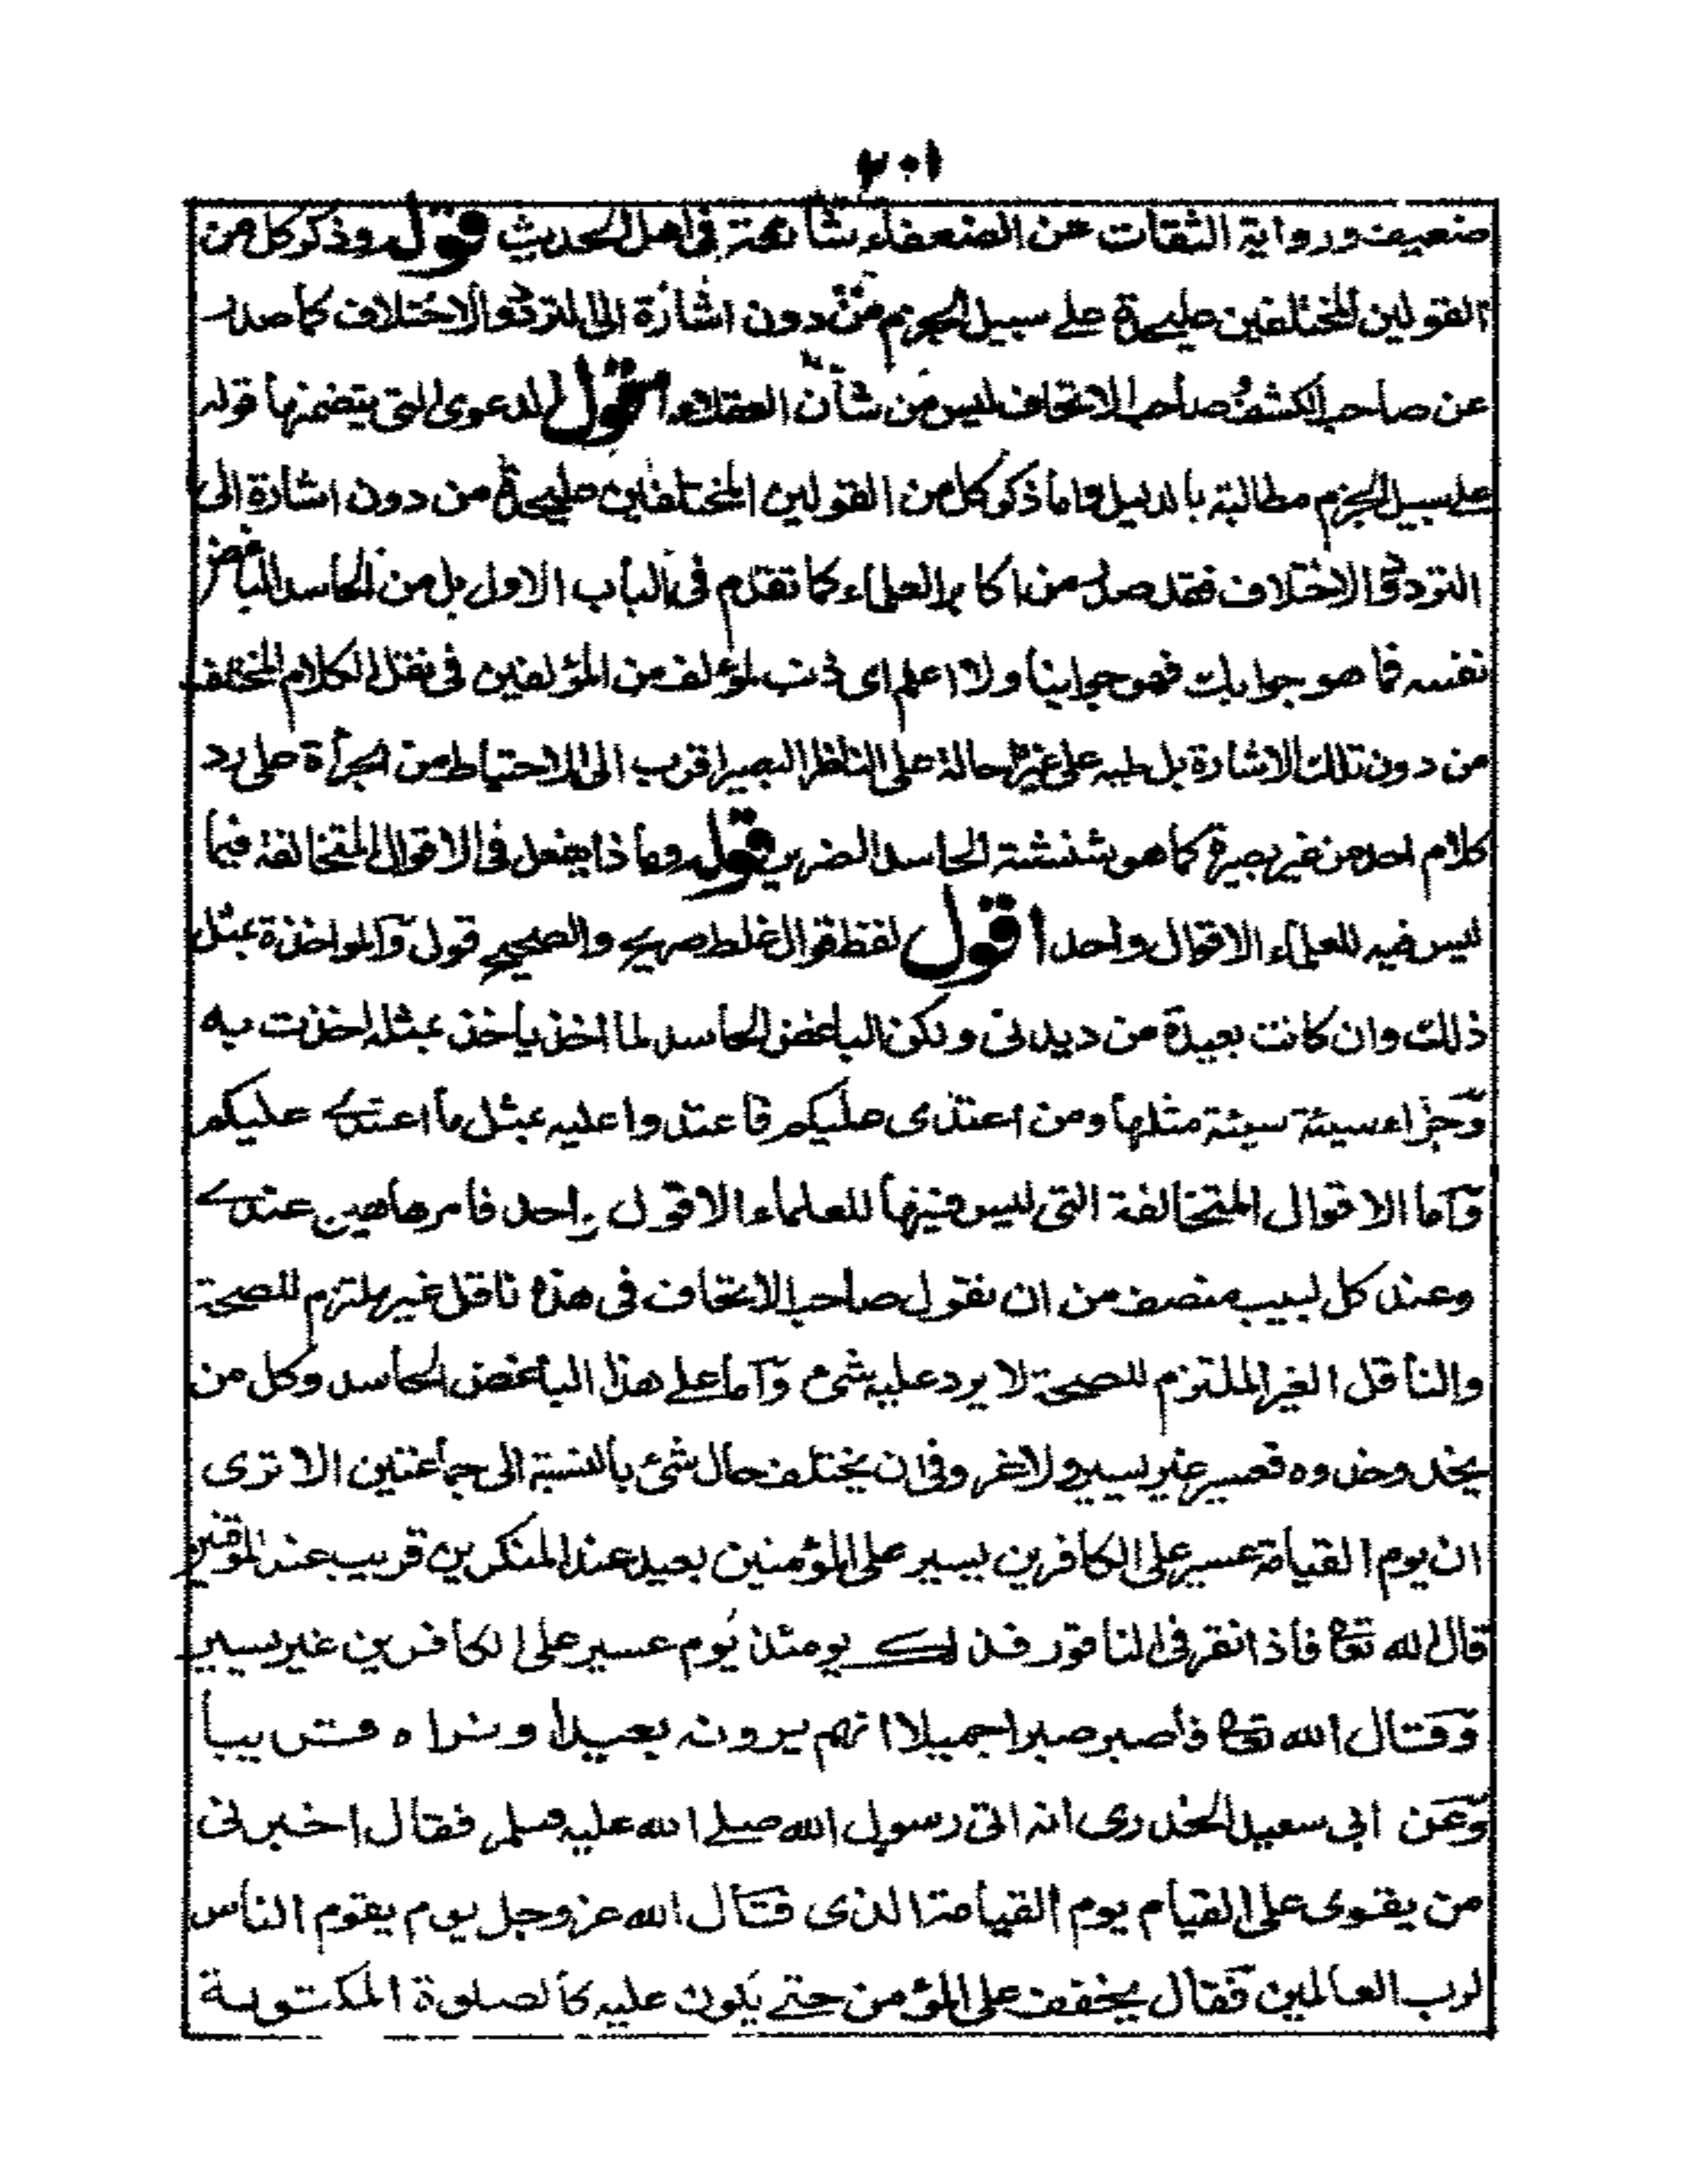 ٢٠١
ضعيف ورواية الثقات عن الضعفاء شائعة في اهل الحديث قوله وذكر كل من
القولين المختلفين عليحدة على سبيل الجزم من دون اشارة الى التردد والاختلاف كما صدر
عن صاحب الكشف وصاحب الاتحاف ليس من شأن العقلاء اقول الدعوى التى يتضمنها قوله
على سبيل الجزم مطالبة بالدليل واما ذكر كل من القولين المختلفين عليحدة من دون اشارة الى
التردد والاختلاف فقد صدر من اكابر العلماء كما تقدم فى الباب الاول بل من الحاسد الباغض
نفسه فما هو جوابك فهو جوابنا ولا اعلم اى ذنب لمؤلف من المؤلفين فى نقل الكلام المختلف
من دون تلك الاشارة بل طيه على غره احالة على الناظر البصير اقرب الى الاحتياط من الجرأة على رد
كلام احد من غير بصيرة كما هو شنشنة الحاسد الضرير قوله وماذا يفعل فى الاقوال المتخالفة فيما
ليس فيه للعلماء الا قوال واحد اقول لفظ قوال غلط صريح والصحيح قول والمواخذة بمثل
ذلك وان كانت بعيدة من ديدنى ولكن الباغض الحاسد لما اخذ ياخذ بمثله اخذت به
وجزاء سيئة سيئة مثلها ومن اعتدى عليكم فاعتدوا عليه بمثل ما اعتدى عليكم
واما الاقوال المتخالفة التى ليس فيها للعلماء الا قول واحد فامرها هين عندى
وعند كل لبيب منصف من ان نقول صاحب الاتحاف فى هذه ناقل غير ملتزم للصحة
والناقل الغير الملتزم للصحة لا يرد عليه شئ واما على هذا الباغض الحاسد وكل من
يحذ وحذوه فعسير غير يسير ولا غرو فى ان يختلف حال شئ بالنسبة الى جماعتين الا ترى
ان يوم القيامة عسير على الكافرين يسير على المؤمنين بعيد عند المنكرين قريب عند الموقنين
قال الله تعالى فاذا نقر فى الناقور فذلك يومئذ يوم عسير على الكافرين غير يسير
وقال الله تعالى فاصبر صبرا جميلا انهم يرونه بعيدا ونراه قريبا
وعن ابى سعيد الخدرى انه اتى رسول الله صلى الله عليه وسلم فقال اخبرنى
من يقوى على القيام يوم القيامة الذى قال الله عز وجل يوم يقوم الناس
لرب العالمين فقال يخفف على المؤمن حتى يكون عليه كالصلوة المكتوبة